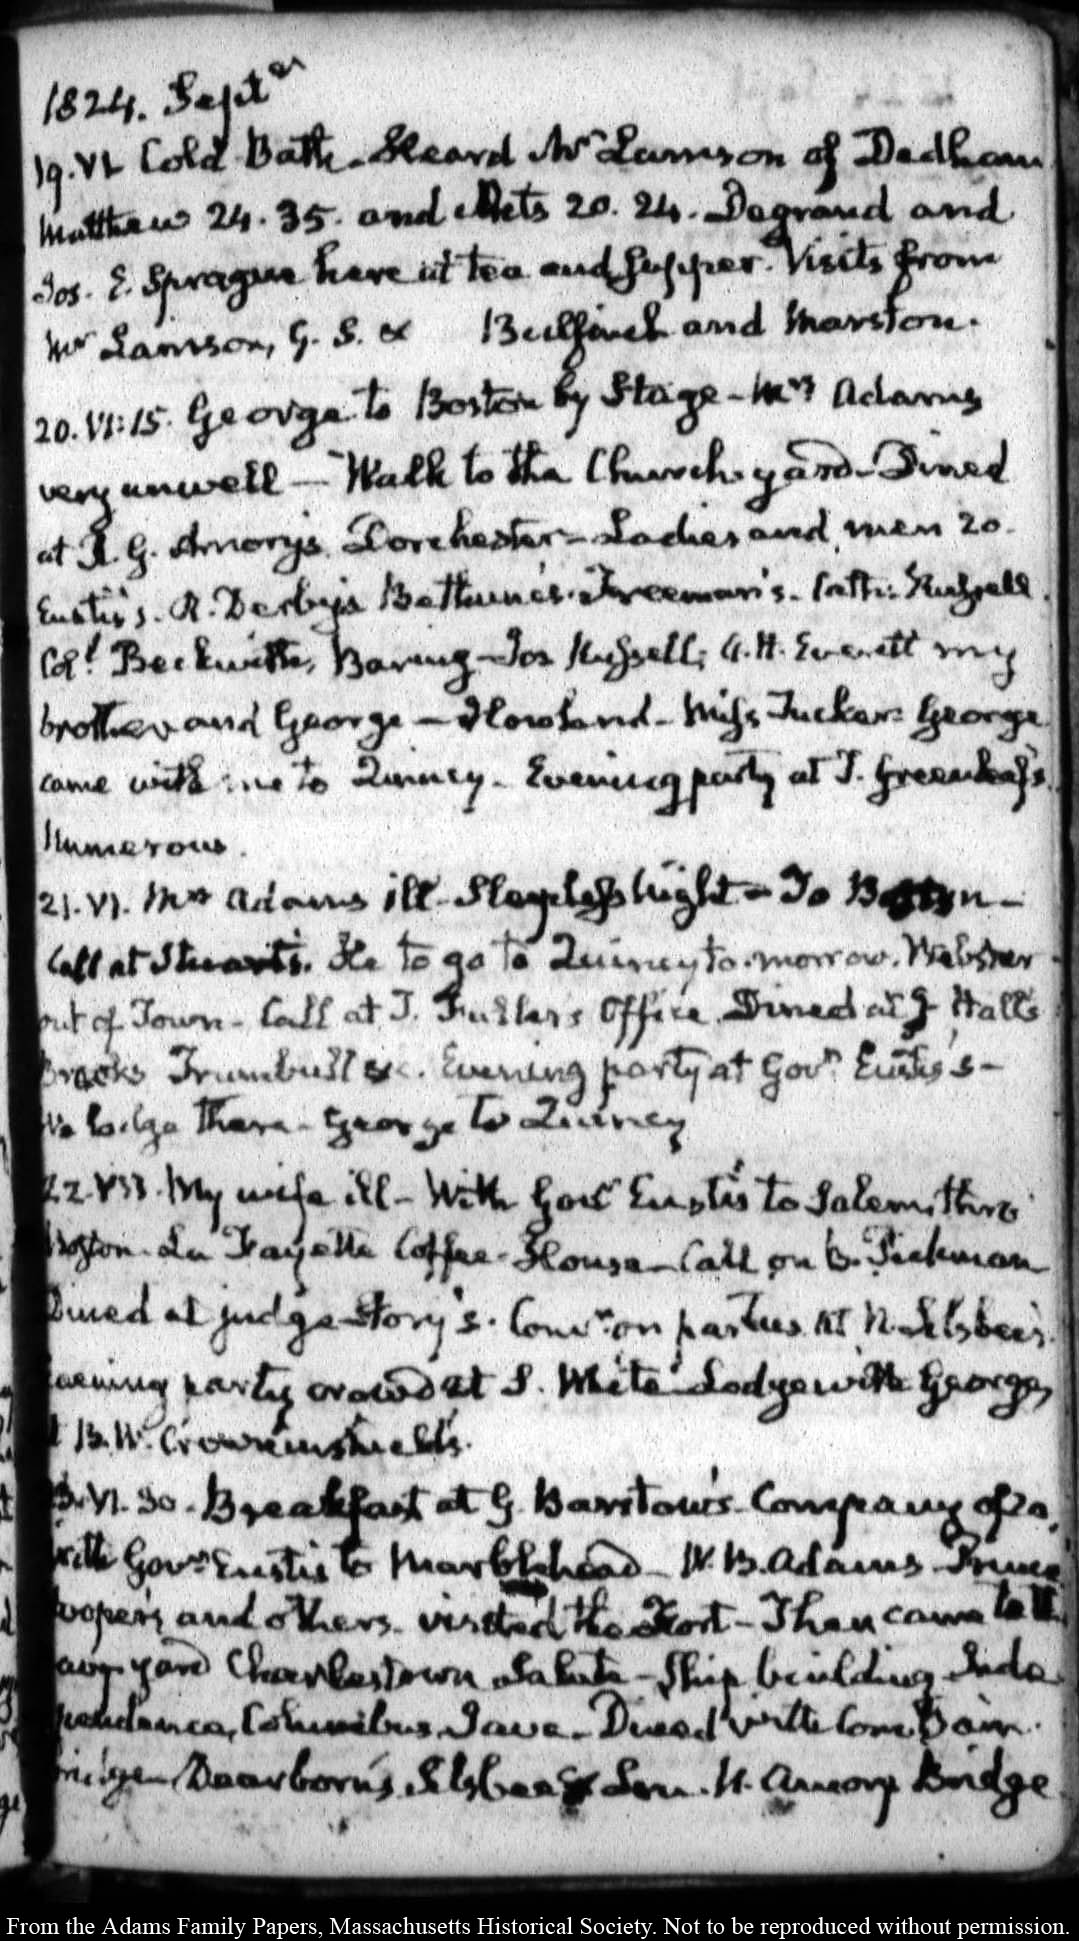 1824. Sept.er
19. VI. Cold Bath. Heard Mr Lamson of Dedham
Matthew 24. 35. and Acts 20. 24. Degrand and
Jos. E. Sprague here at tea and supper. Visits from
Mr Lamson, G. S. & Bulfinch and Marston.
20. VI:15. George to Boston by Stage - Mrs Adams
very unwell — Walk to the Church-yard - Dined
at J. G. Amory's Dorchester - Ladies and men 20.
Eustis's. R. Derby's Bethune's. Freeman's. Cath: Russell.
Col.l Beckwith, Baring - Jos Russell; A. H. Everett my
brother and George - Howland - Miss Tucker: George
came with me to Quincy - Evening party at T. Greenleaf's.
Numerous.
21. VI. Mrs Adams ill - Sleepless Night - To Boston -
Call at Stuart's. He to go to Quincy to-morrow. Webster
out of Town - Call at T. Fuller's Office. Dined at J Hall's
Brooks Trumbull &c. Evening party at Govr. Eustis's -
lodge there - George to Quincy
22. My wife ill - With Govr Eustis to Salem, thro'
Boston - La Fayette Coffee-House - Call on B. Pickman
Dined at judge Story's. on parties at N. Silsbee's.
Evening party crowd at S. White's Lodge with George,
at B. W. Crowninshield's.
VI. 30. Breakfast at G. Barstow's Company of 20,
with Govr. Eustis to Marblehead - W. B. Adams - Prince
Cooper's and others - visited the Fort - Then came to the
Navy-yard Charlestown Salute - Ship building Inde
pendence, Columbus, Java - Dined with Com. Bain
bridge - Dearborn's, Silsbee & H. Amory Bridge